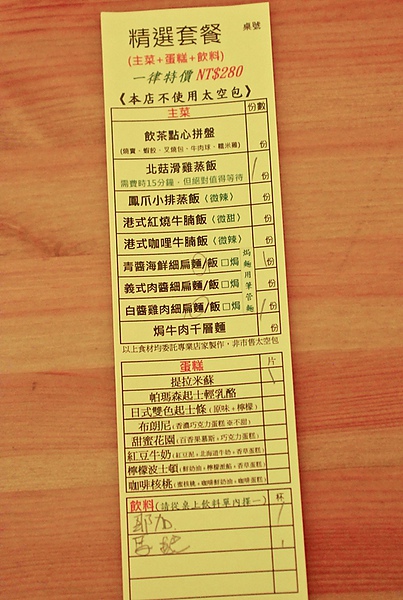 精選套餐 桌號
(主菜+蛋糕+飲料)
一律特價 NT$280
《本店不使用太空包》
主菜 份數
飲茶點心拼盤 份
(燒賣、蝦餃、叉燒包、牛肉球、糯米雞)
北菇滑雞蒸飯 / 份
需費時15分鐘，但絕對值得等待
鳳爪小排蒸飯〈微辣〉 份
港式紅燒牛腩飯〈微甜〉 份
港式咖哩牛腩飯〈微辣〉 份
青醬海鮮細扁麵/飯 □焗 1份
義式肉醬細扁麵/飯 □焗 份
白醬雞肉細扁麵/飯 □焗 / 份
焗麵用筆管麵
焗牛肉千層麵 份
以上食材均委託專業店家製作，非市售太空包
蛋糕 片
提拉米蘇
帕瑪森起士輕乳酪
日式雙色起士條(原味+檸檬)
布朗尼(香濃巧克力蛋糕 ※不甜)
甜蜜花園(百香果慕斯+巧克力蛋糕)
紅豆牛奶(紅豆泥+北海道牛奶+香草蛋糕)
檸檬波士頓(鮮奶油+檸檬凝點+香草蛋糕)
咖啡核桃(蜜核桃+咖啡鮮奶油+咖啡蛋糕)
飲料(請從桌上飲料單內擇一) 杯
耶加 /